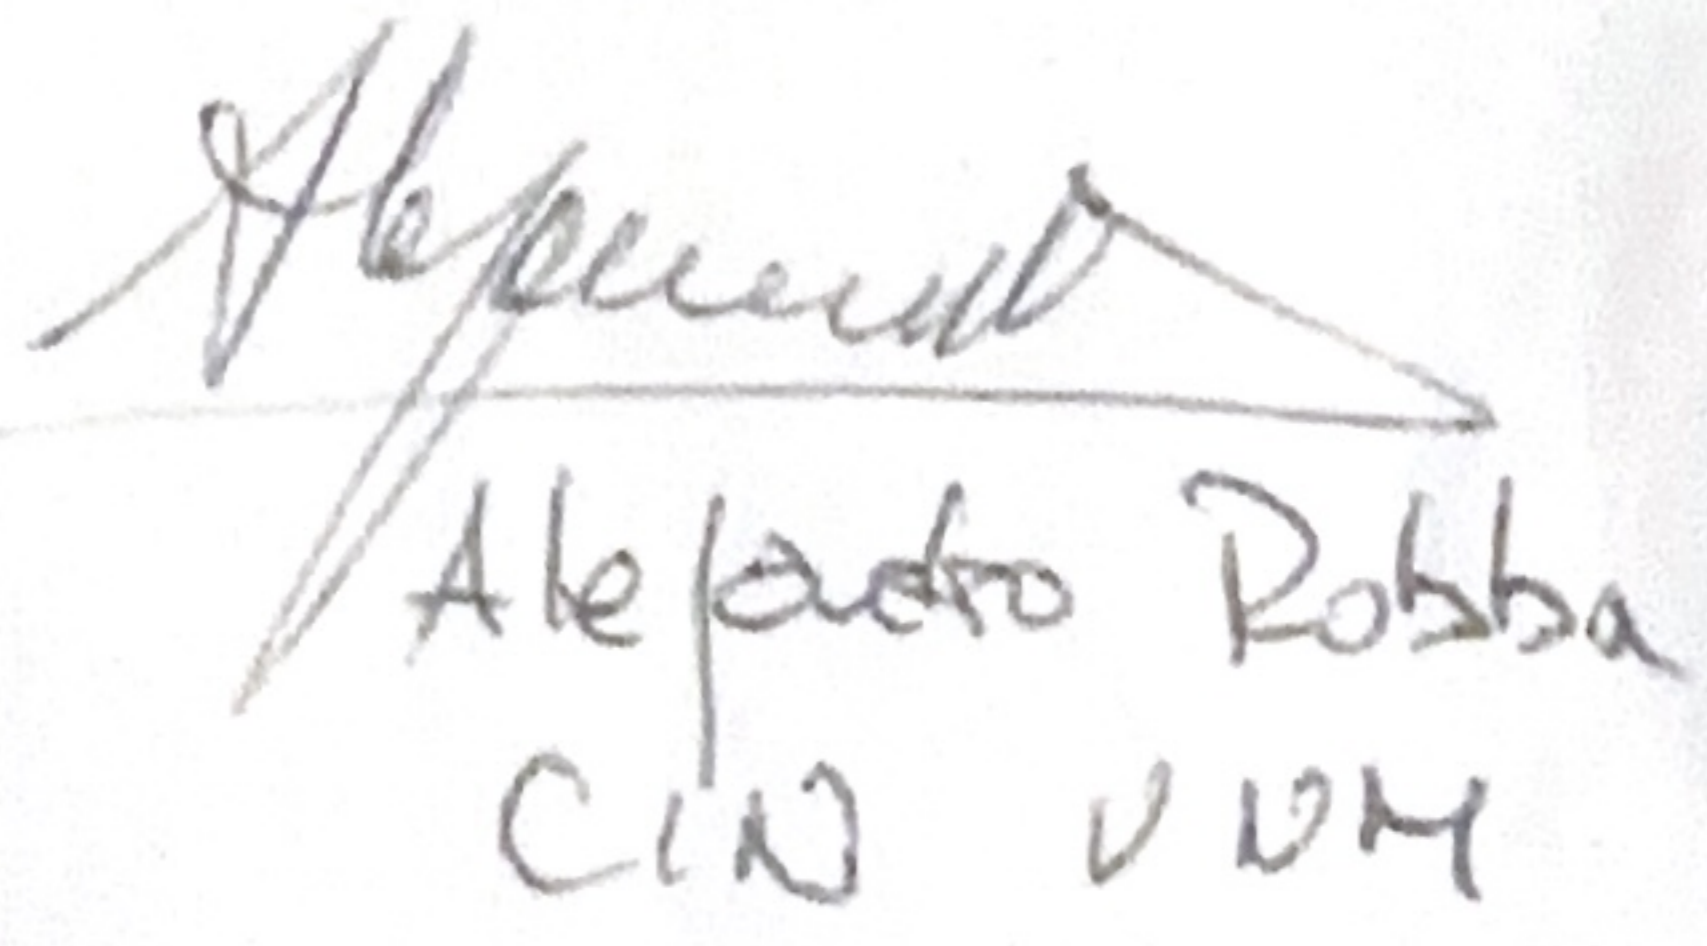 Alejandro Robba
CIN UNM